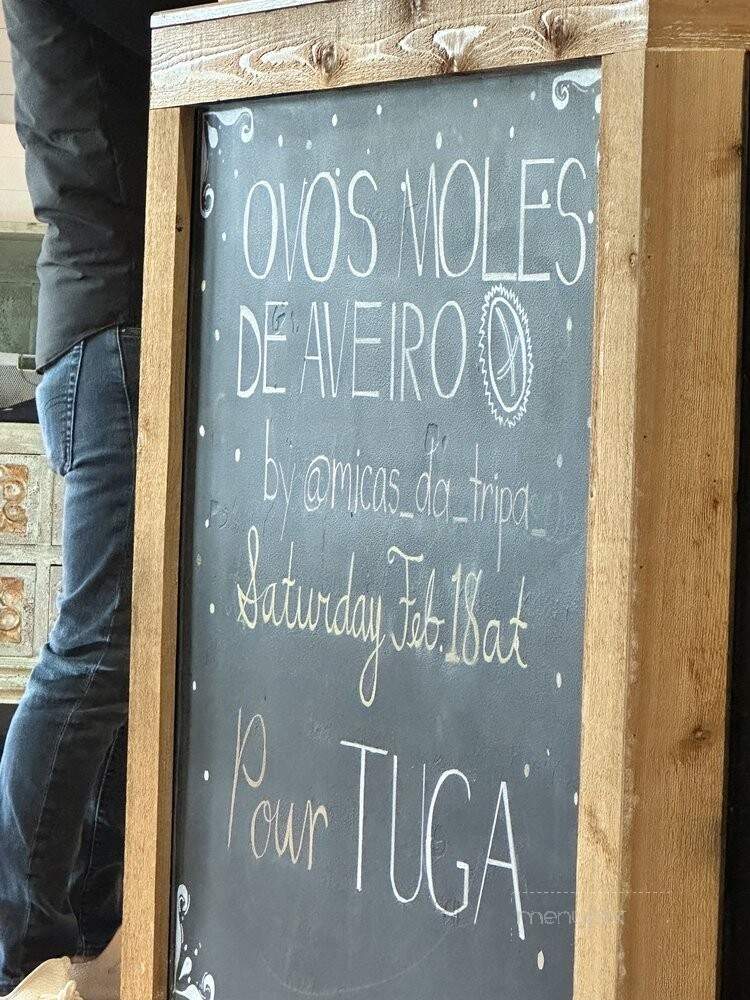 OVOS MOLES
DE AVEIRO
by @micas_da_tripa_
Saturday Feb. 18 at
Pour TUGA